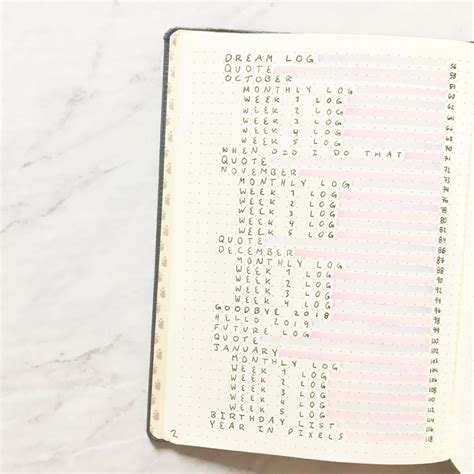 DREAM LOG 56
QUOTE 58
OCTOBER
MONTHLY LOG
WEEK 1 LOG 62
WEEK 2 LOG 64
WEEK 3 LOG 66
WEEK 4 LOG 68
WEEK 5 LOG 70
WHEN DID I DO THAT 71
QUOTE 72
NOVEMBER 73
MONTHLY LOG 74
WEEK 1 LOG 76
WEEK 2 LOG 78
WEEK 3 LOG 80
WEEK 4 LOG 82
WEEK 5 LOG 84
QUOTE 86
DECEMBER 87
MONTHLY LOG 88
WEEK 1 LOG 90
WEEK 2 LOG 92
WEEK 3 LOG 94
WEEK 4 LOG 96
GOODBYE 2018
HELLO 2019 98
FUTURE LOG
QUOTE
JANUARY
MONTHLY LOG
WEEK 1 LOG
WEEK 2 LOG
WEEK 3 LOG
WEEK 4 LOG
WEEK 5 LOG
BIRTHDAY LIST
YEAR IN PIXELS 118
2